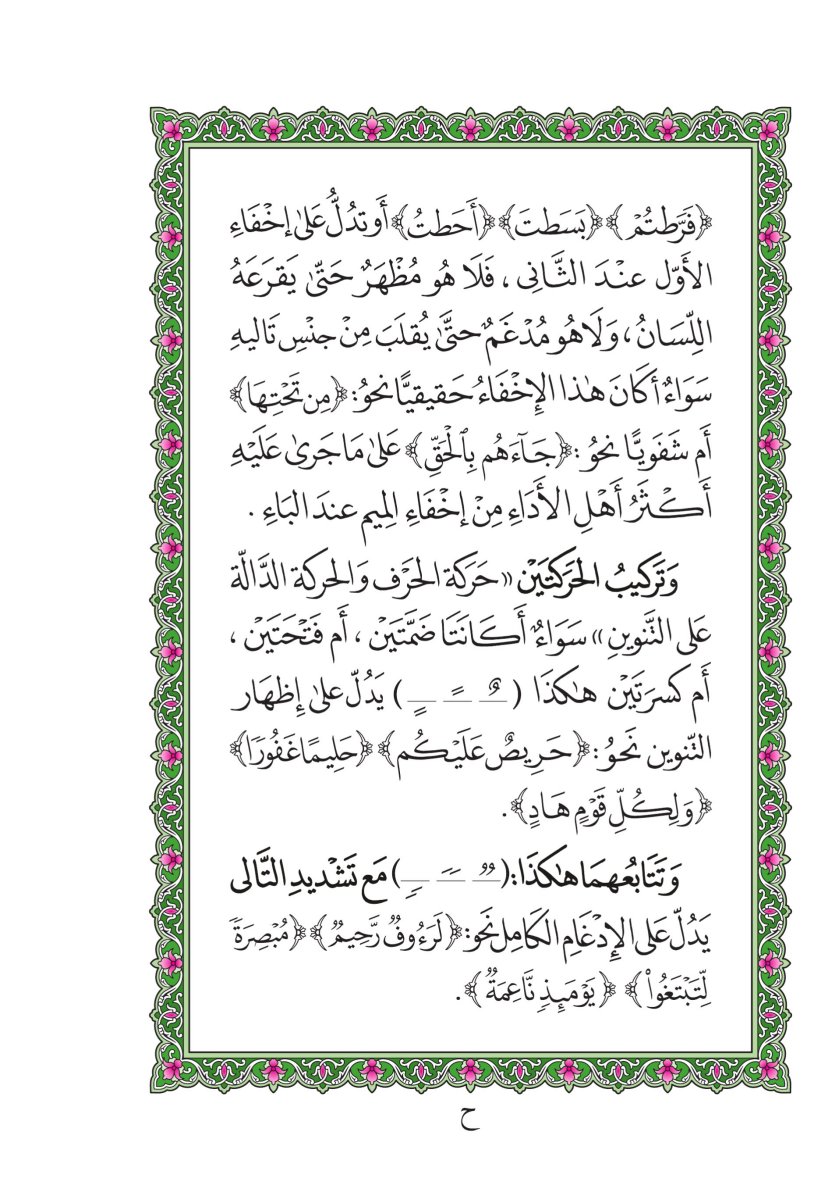 ﴿فَرَّطتُمْ﴾ ﴿بَسَطتَ﴾ ﴿أَحَطتُ﴾ أَو تدُلُّ عَلىٰ إخْفَاءِ
الأَوّل عندَ الثَّانِى ، فَلَا هُو مُظْهَرٌ حَتّىٰ يَقرَعَهُ
اللِّسَانُ ، وَلَا هُو مُدْغَمٌ حتَّىٰ يُقلَبَ مِنْ جنْسِ تَاليهِ
سَوَاءٌ أكَانَ هٰذا الإِخْفَاءُ حَقيقيًّا نحوُ : ﴿مِن تَحْتِهَا﴾
أم شَفَويًّا نحوُ : ﴿جَآءَهُم بِٱلْحَقِّ﴾ عَلىٰ مَا جَرىٰ عَلَيْهِ
أَكْثَرُ أَهْلِ الأَدَاءِ مِنْ إخْفَاءِ المِيم عندَ البَاءِ .
وَتَركيبُ الحَرَكتَيْن « حَرَكة الحَرْف وَالحركة الدَّالّة
عَلى التَّنوينِ » سَوَاءٌ أَكَانَتَا ضَمَّتَيْن ، أم فَتْحَتَيْن ،
أم كسرَتَيْن هٰكذَا ( ــٌـ ــًـ ــٍـ ) يَدُلّ علىٰ إِظهَار
التّنوين نَحوُ : ﴿حَرِيصٌ عَلَيْكُم﴾ ﴿حَلِيمًا غَفُورًا﴾
﴿وَلِكُلِّ قَوْمٍ هَادٍ﴾ .
وَتَتَابُعهمَا هٰكَذَا : ( ــࣱـ ــࣰـ ــࣲـ ) مَع تَشْديدِ التَّالى
يَدُلّ عَلى الإِدْغَامِ الكَامِل نَحوُ : ﴿لَرَءُوفࣱ رَّحِيمࣱ﴾ ﴿مُبْصِرَةࣰ
لِّتَبْتَغُواْ﴾ ﴿يَوْمَئِذࣲ نَّاعِمَةࣱ﴾ .
ح